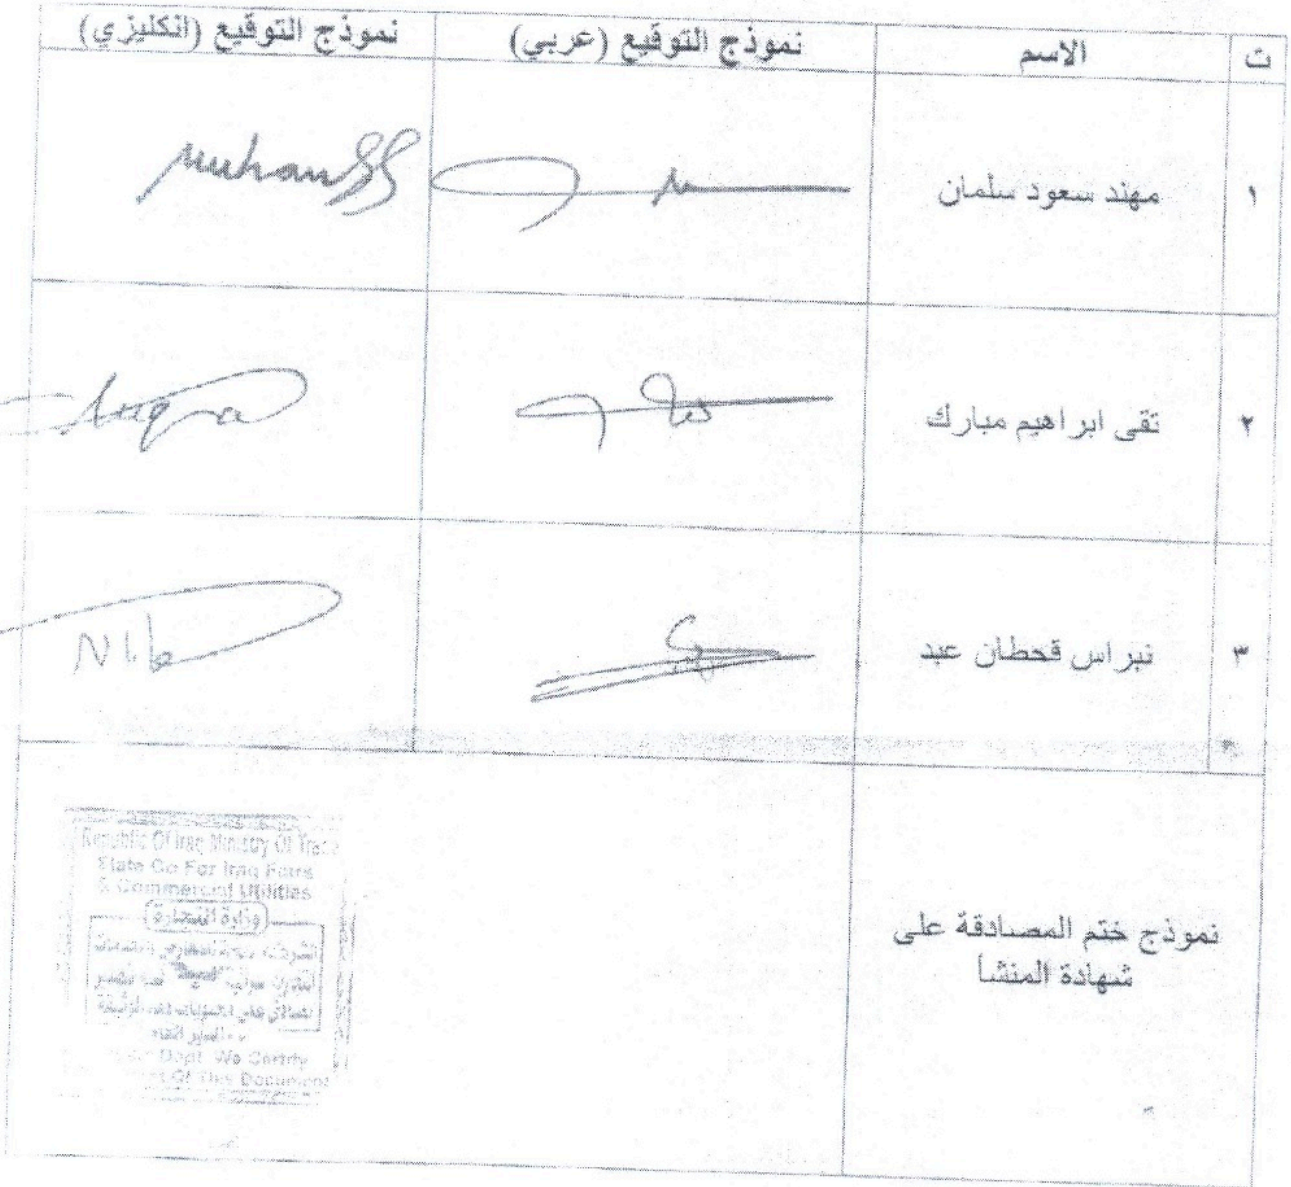 ت الاسم نموذج التوقيع (عربي) نموذج التوقيع (انكليزي)
١ مهند سعود سلمان muhan
٢ تقى ابراهيم مبارك tuqa
٣ نبراس قحطان عبد Nib
نموذج ختم المصادقة على
شهادة المنشا
Republic Of Iraq Ministry Of Trade
State Co For Iraq Fairs
& Commercial Utilities
وزارة التجارة
Dept We Certify
Of This Document